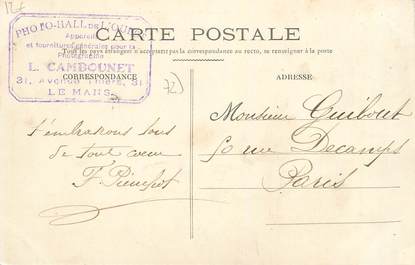 12€
CARTE POSTALE
Tous les pays étrangers n'acceptent pas la correspondance au recto, se renseigner à la poste
PHOTO-HALL DE L'OUEST
Appareils
et fournitures générales pour la
Photographie
L. CAMBOUNET
31, Avenue Thiers, 31
LE MANS
CORRESPONDANCE
72)
t'embrassons tous
de tout coeur
F.
ADRESSE
Monsieur Guibout
rue Decamps
Paris